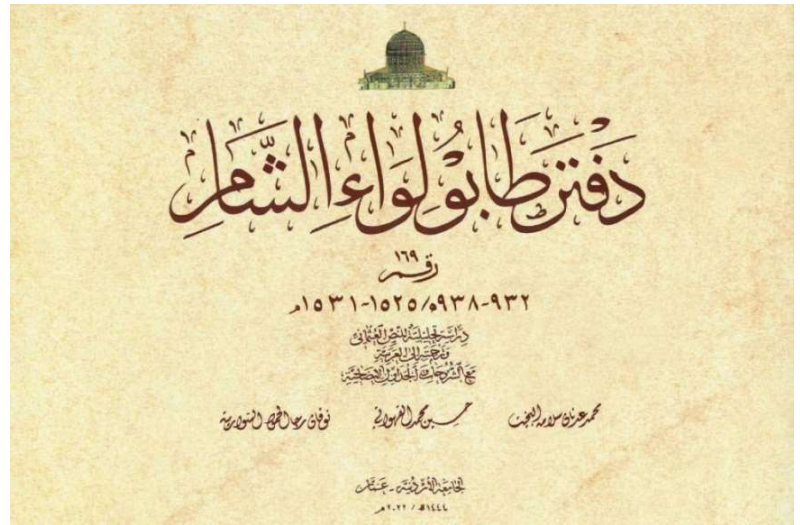 دَفْتَر طَابُو لِوَاءِ الشَّامِ
رقم ١٦٩
٩٣٢-٩٣٨ه/١٥٢٥-١٥٣١م
دراسة تحليلية للنص العثماني
وترجمته إلى العربية
مع الشروحات والجداول الإيضاحية
محمد عدنان سلامة البخيت حسين محمد القهواتي نوفان رجا الحمود السوارية
الجامعة الأردنية - عمّان
١٤٤٤ه / ٢٠٢٢م